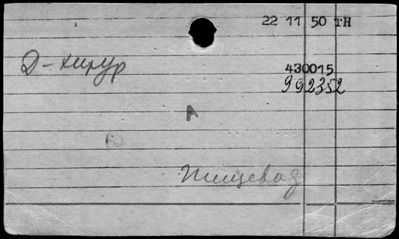 22 11 50 TH
Д-хирур
430015
992352
А
Пищевод